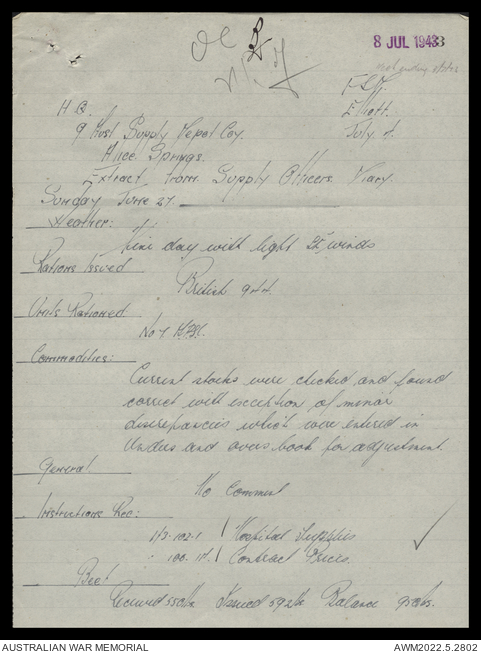 8 JUL 1943
F.S.D.
H.Q. Elliott.
9 Aust Supply Depot Coy. July 4.
Alice Springs.
Extract from Supply Officers Diary
Sunday June 27.
Weather:
Fine day with light SE winds
Rations Issued
British 944
Units Rationed.
No 7
Commodities:
Current stocks were checked and found
correct with exception of minor
discrepancies which were entered in
Unders and overs book for adjustment.
General
No Comment
Instructions Rec:
113-102-1 Hospital Supplies
" 100. 17. Contract Prices.
Beef
Received 550lbs Issued 592lbs Balance 95lbs.
AUSTRALIAN WAR MEMORIAL
AWM2022.5.2802